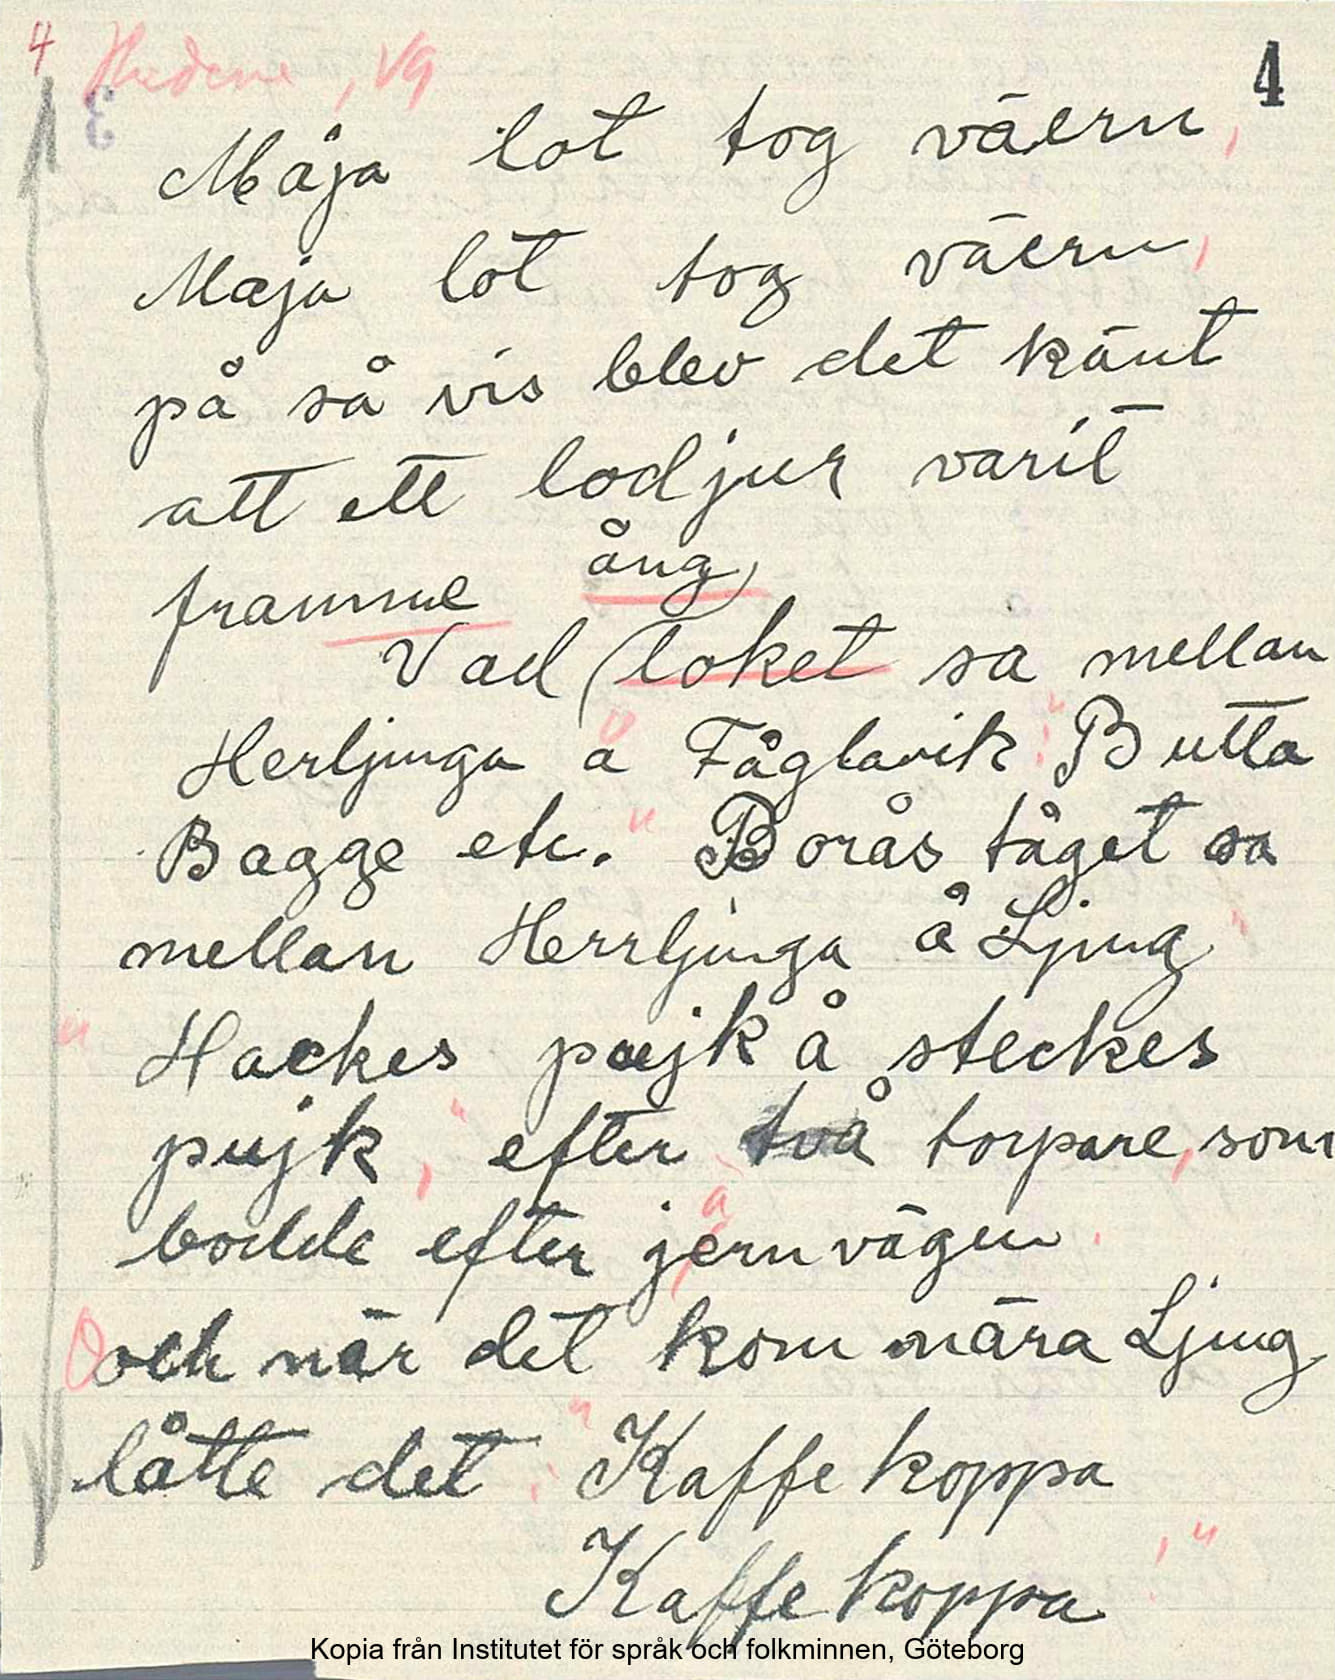 4 Hudene, Vg 4
3
Maja lot tog väern,
Maja lot tog väern,
på så vis blev det känt
att ett lodjur varit
framme
ång
Vad (loket sa mellan
Herljunga å Fåglavik: "Butta
Bagge etc." Borås tåget sa
mellan Herrljunga å Ljung
"Hackes pujk å steckes
pujk", efter två torpare, som
bodde efter jernvägen.
Och när det kom nära Ljung
låtte det: "Kaffe koppa
Kaffe koppa"
Kopia från Institutet för språk och folkminnen, Göteborg